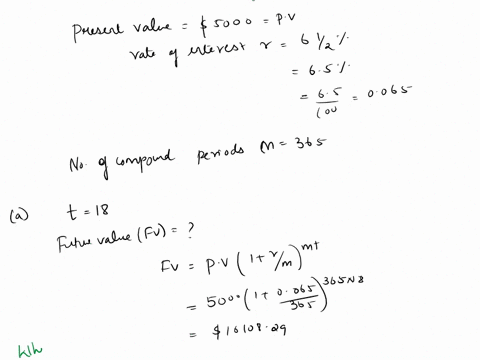 Present value = $5000 = P.V
rate of interest r = 6 1/2 %
= 6.5 %
= 6.5/100 = 0.065
No. of compound periods m = 365
(a) t = 18
Future value (FV) = ?
FV = P.V (1 + r/m)^mt
= 5000 (1 + 0.065/365)^365×18
= $16108.29